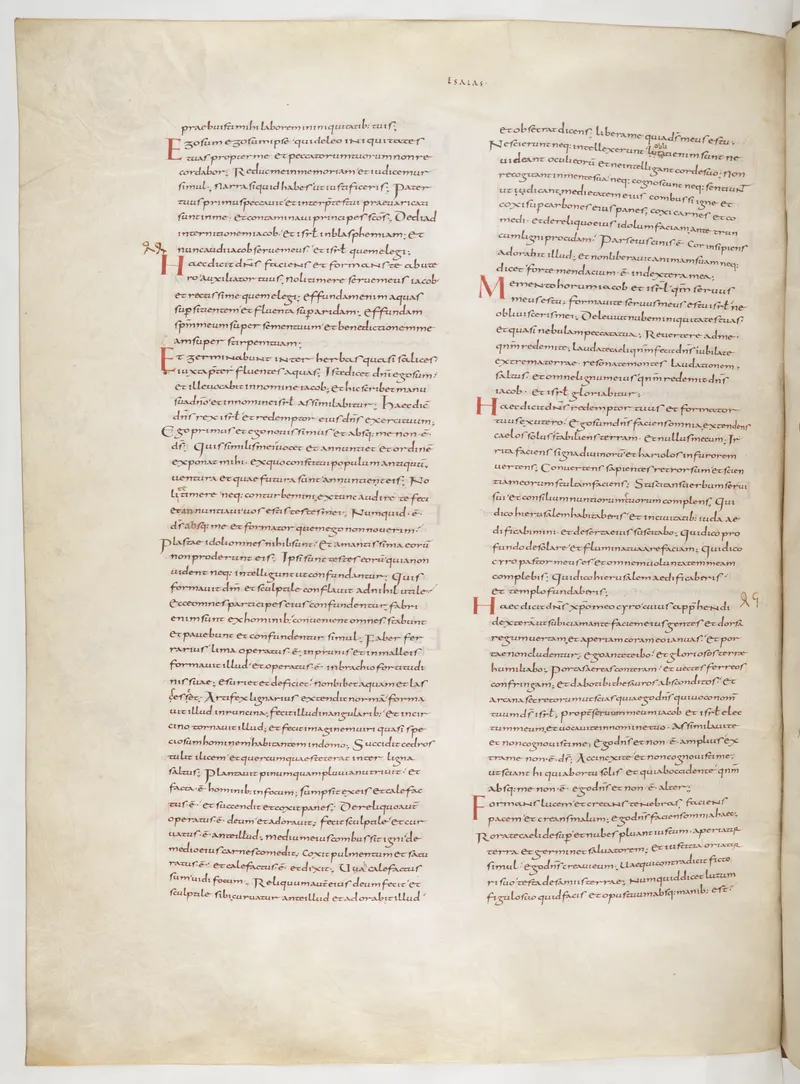 ESAIAS·
praebuisti mihi laborem in iniquitatib: tuis;
Ego sum ego sum ipse· qui deleo iniquitates
tuas propter me· et peccatorum tuorum non re
cordabor; Reduc me in memoriam et iudicemur
simul; narra si quid habes ut iustificeris; Pater
tuus primus peccauit· et interpretes tui praeuaricati
sunt in me· et contaminaui principes scos; Dedi ad
internitionem iacob· et isrl in blasphemiam; et
nunc audi iacob serue meus· et isrl quem elegi;
Haec dicit dns faciens et formans te ab ute
ro auxiliator tuus; noli timere serue meus iacob
et rectissime quem elegi; effundam enim aquas
super sitientem et fluenta super aridam; effundam
spm meum super semen tuum· et benedictionem me
am super stirpem tuam;
Et germinabunt inter herbas quasi salices
iuxta praeterfluentes aquas; Iste dicet dni ego sum·
et ille uocabit in nomine iacob; et hic scribet manu
sua dno· et in nomine isrl assimilabitur; Haec dic
dns rex isrl· et redemptor eius dns exercituum;
Ego primus et ego nouissimus· et absq: me non e·
ds; Quis similis mei uocet et annuntiet· et ordine
exponat mihi· ex quo constitui populum antiquu;
uentura et quae futura sunt annuntient eis; No
lite timere neq: conturbemini· ex tunc audire te feci
et annuntiaui· uos estis testes mei; Numquid ·e·
ds absq: me· et formator quem ego non nouerim·
Plastae idoli omnes nihil sunt· et amantissima eoru
non proderunt eis; Ipsi sunt testes eoru· quia non
uident neq: intellegunt ut confundantur; Quis
formauit dm· et sculptile conflauit ad nihil utile·
Ecce omnes participes eius confundentur; fabri
enim sunt ex hominib: conuenient omnes stabunt
et pauebunt et confundentur simul; Faber fer
rarius lima operatus ·e· in prunis et in malleis
formauit illud· et operatus ·e· in brachio fortitudi
nis suae; esuriet et deficiet· non bibet aquam et las
sescet; Artifex lignarius extendit norma· forma
uit illud in runcina; fecit illud in angularib:· et in cir
cino tornauit illud; et fecit imaginem uiri quasi spe
ciosum hominem habitantem in domo; Succidit cedros
tulit ilicem et quercum quae steterat inter ligna
saltus; Plantauit pinum quam pluuia nutriuit· et
facta ·e· hominib: in focum; sumpsit ex eis et calefac
tus ·e· et succendit et coxit panes; De reliquo aut
operatus ·e· deum et adorauit; fecit sculptile· et cur
uatus ·e· ante illud; medium eius combussit igni· de
medio eius carnes comedit; Coxit pulmentum et satu
ratus ·e· et calefactus ·e· et dixit; Ua calefactus
sum uidi focum; Reliquum aut eius deum fecit· et
sculptile sibi; curuatur ante illud et adorabit illud·
et obsecrat dicens; libera me quia ds meus es tu·
Nescierunt neq: intellexerunt· obliti enim sunt ne
uideant oculi eoru et ne intellegant corde suo; Non
recogitant in mente sua· neq: cognoscunt neq: sentiunt
ut dicant· medietatem eius combussi igne· et
coxi super carbones eius panes; coxi carnes et co
medi· et de reliquo eius idolum faciam· ante trun
cum ligni procidam· Pars eius cinis ·e· Cor insipiens
adorabit illud; et non liberauit animam suam neq:
dicet· forte mendacium ·e· in dextera mea;
Memento horum iacob et isrl· qm seruus
meus es tu; formaui te seruus meus es tu isrl· ne
obliuiscaris mei; Deleui ut nubem iniquitates tuas
et quasi nebulam peccata tua; Reuertere ad me·
qnm redemi te; laudate caeli qnm fecit dns· iubilate
extrema terrae· resonate montes laudationem;
saltus et omne lignum eius qnm redemit dns
iacob· et isrl gloriabitur;
Haec dicit dns redemptor tuus et formator
tuus ex utero; Ego sum dns faciens omnia extendens
caelos solus stabiliens terram· et nullus mecum; Ir
rita faciens signa diuinoru et hariolos in furorem
uertens; Conuertens sapientes retrorsum et scien
tiam eorum stultam faciens; Suscitans uerbum serui
sui· et consilium nuntiorum suorum complens; Qui
dico hierusalem habitaberis· et ciuitatib: iuda ae
dificabimini· et deserta eius suscitabo; Qui dico pro
fundo desolare· et flumina tua arefaciam; Qui dico
cyro pastor meus es· et omnem uoluntatem meam
complebis; Qui dico hierusalem aedificaberis·
et templo fundaberis;
Haec dicit dns xpo meo cyro· cuius apphendi
dexteram· ut subiciam ante faciem eius gentes· et dorsa
regum uertam· et aperiam coram eo ianuas· et por
tae non cludentur; ego ante te ibo· et gloriosos terrae
humiliabo; Portas aereas conteram· et uectes ferreos
confringam; et dabo tibi thesauros absconditos· et
arcana secretorum· ut scias quia ego dns qui uoco nom
tuum ds isrl; propter seruum meum iacob et isrl elec
tum meum· et uocaui te in nomine tuo· Assimilaui te
et non cognouisti me; Ego dns et non ·e· amplius ex
tra me non ·e· ds; Accinxi te et non cognouisti me;
ut sciant hi qui ab ortu solis· et qui ab occidente· qnm
absq: me non ·e· ego dns et non ·e· alter;
Formans lucem et creans tenebras faciens
pacem et creans malum; ego dns faciens omnia haec;
Rorate caeli desuper· et nubes pluant iustum· aperiatur
terra et germinet saluatorem; et iustitia oriatur
simul· ego dns creaui eum; Uae qui contradicit ficto
ri suo· testa de samiis terrae; Numquid dicet lutum
figulo suo quid facis· et opus tuum absq: manib: est·